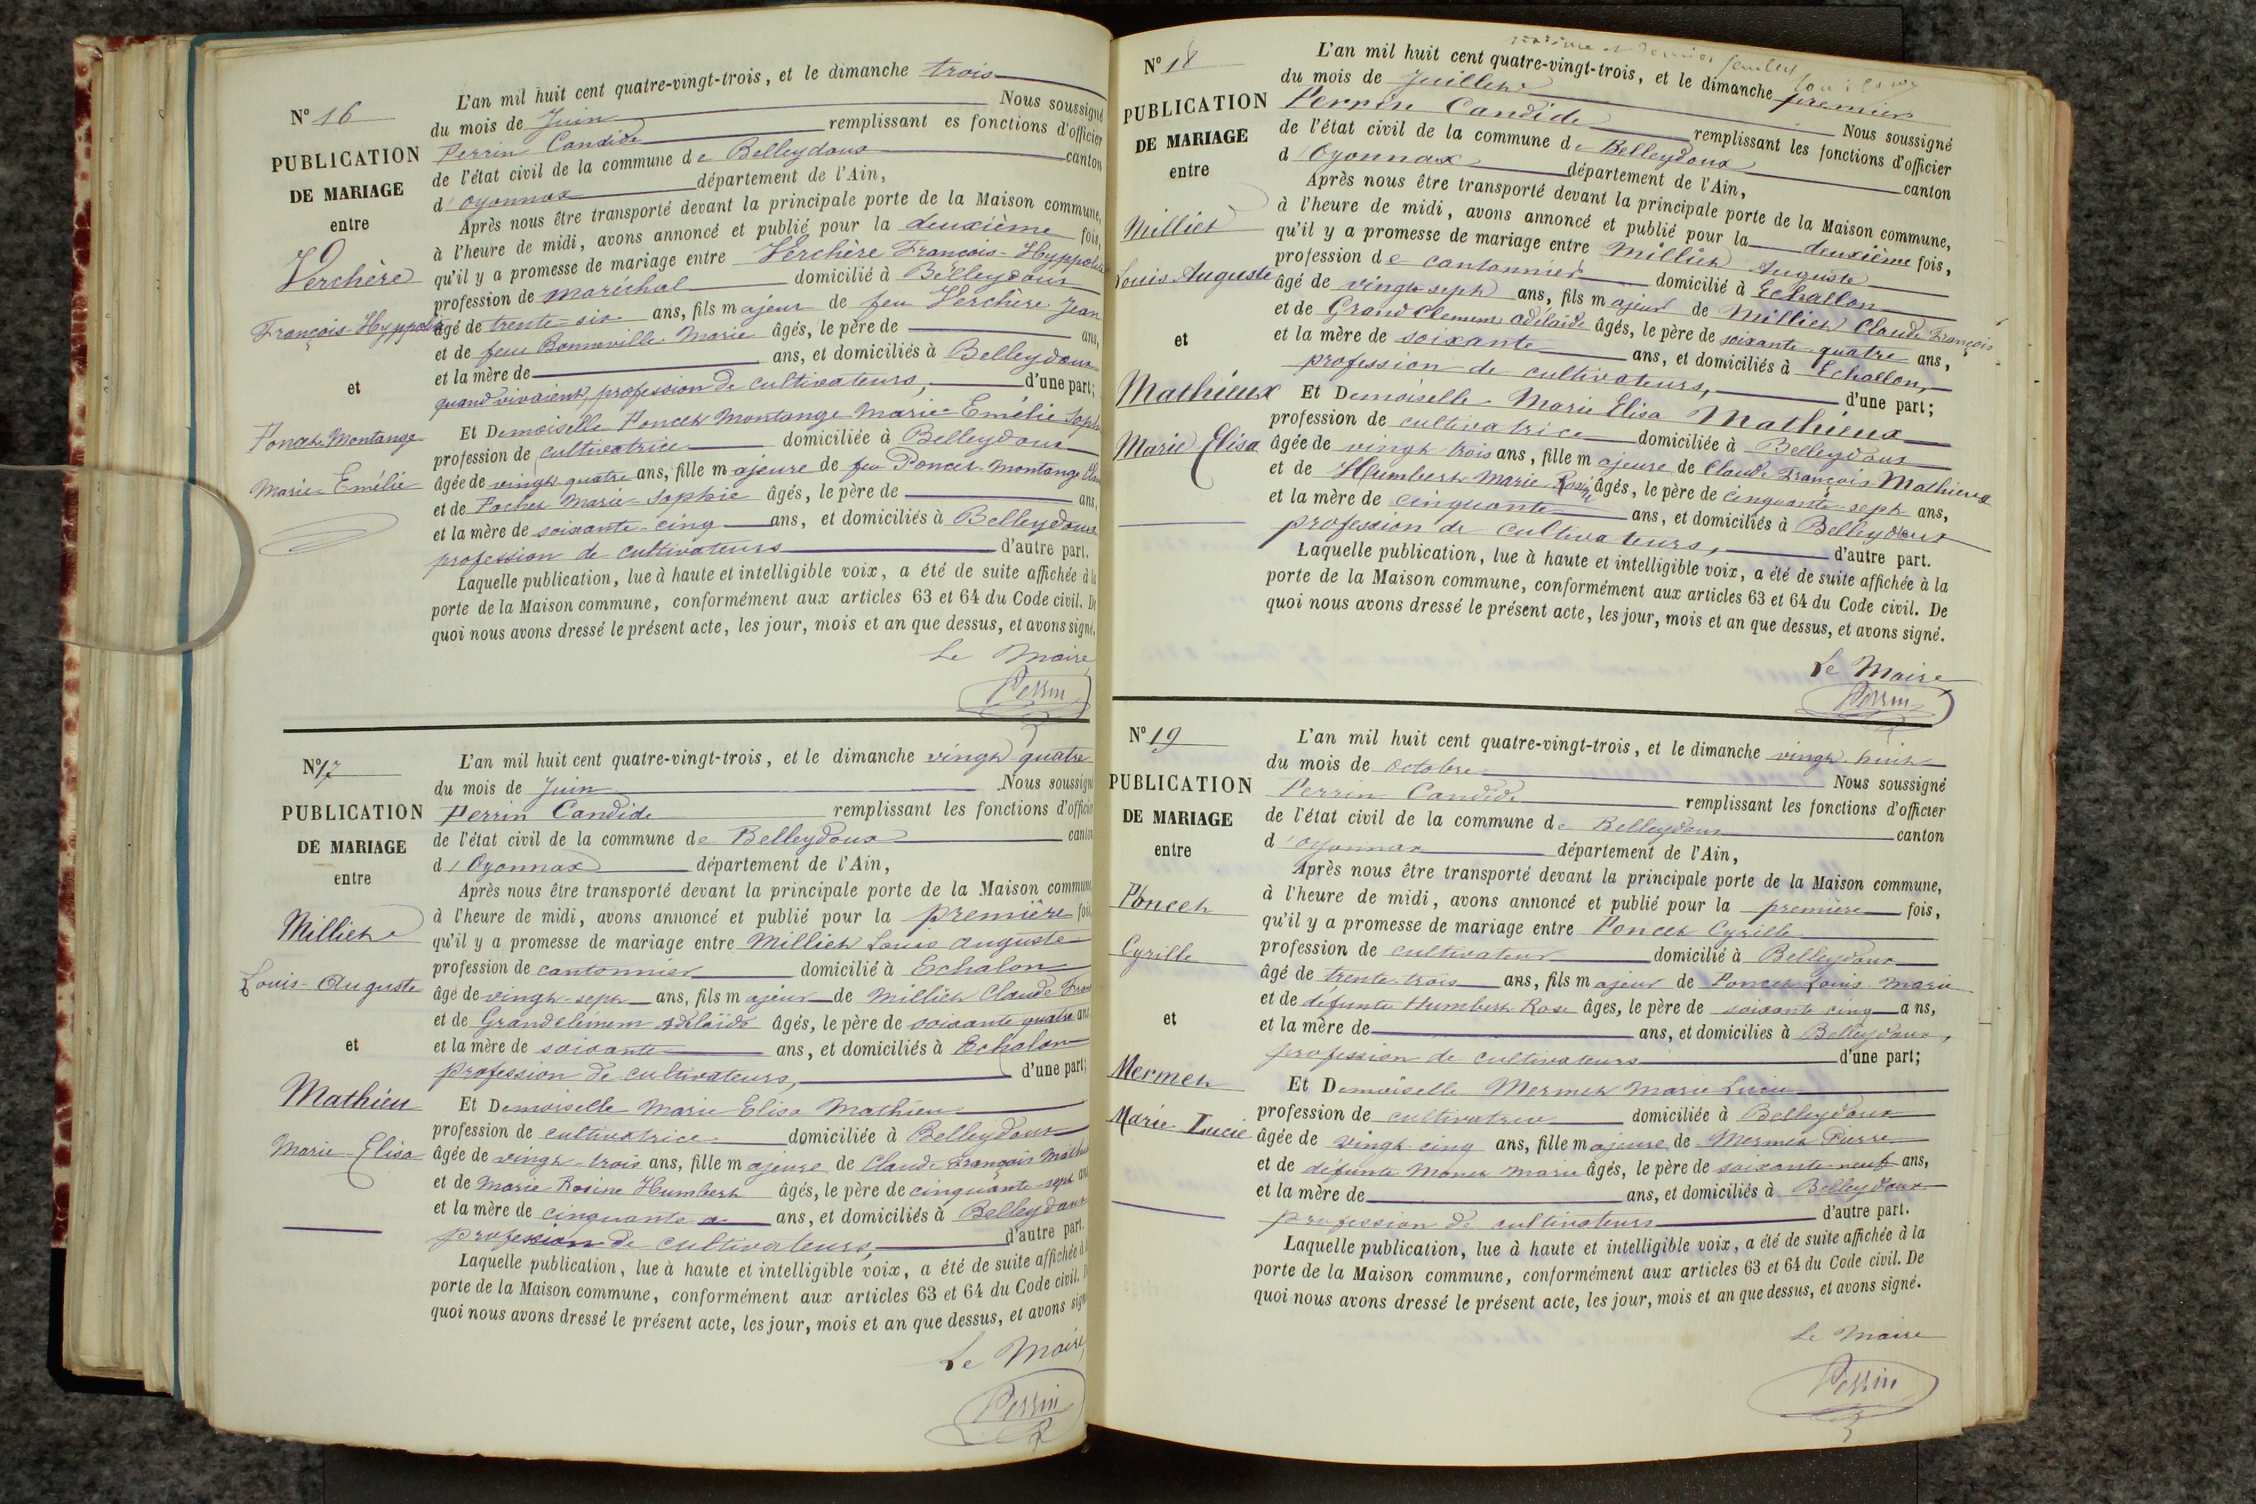 N° 16
PUBLICATION
DE MARIAGE
entre
Verchère
François-Hyppolite
et
Poncet-Montange
Marie-Emélie
L'an mil huit cent quatre-vingt-trois, et le dimanche trois
du mois de Juin Nous soussigné
Perrin Candide remplissant es fonctions d'officier
de l'état civil de la commune de Belleydoux canton
d'Oyonnax département de l'Ain,
Après nous être transporté devant la principale porte de la Maison commune,
à l'heure de midi, avons annoncé et publié pour la deuxième fois,
qu'il y a promesse de mariage entre Verchère François-Hyppolite
profession de maréchal domicilié à Belleydoux
âgé de trente-six ans, fils majeur de feu Verchère Jean
et de feue Bonneville Marie âgés, le père de ans,
et la mère de ans, et domiciliés à Belleydoux
quand vivaient, profession de cultivateurs, d'une part;
Et Demoiselle Poncet Montange Marie-Emélie Soph
profession de cultivatrice domiciliée à Belleydoux
âgée de vingt quatre ans, fille majeure de feu Poncet-Montange
et de Marie-Sophie âgés, le père de ans,
et la mère de soixante-cinq ans, et domiciliés à Belleydoux
profession de cultivateurs d'autre part.
Laquelle publication, lue à haute et intelligible voix, a été de suite affichée à la
porte de la Maison commune, conformément aux articles 63 et 64 du Code civil. De
quoi nous avons dressé le présent acte, les jour, mois et an que dessus, et avons signé.
Le Maire
Perrin
N° 17
PUBLICATION
DE MARIAGE
entre
Milliet
Louis-Auguste
et
Mathieu
Marie-Elisa
L'an mil huit cent quatre-vingt-trois, et le dimanche vingt quatre
du mois de Juin Nous soussigné
Perrin Candide remplissant les fonctions d'officier
de l'état civil de la commune de Belleydoux canton
d'Oyonnax département de l'Ain,
Après nous être transporté devant la principale porte de la Maison commune
à l'heure de midi, avons annoncé et publié pour la première fois
qu'il y a promesse de mariage entre Milliet Louis Auguste
profession de cantonnier domicilié à Echalon
âgé de vingt-sept ans, fils majeur de Milliet Claude Fran
et de Grandclément Adélaïde âgés, le père de soixante quatre ans
et la mère de soixante ans, et domiciliés à Echalon
profession de cultivateurs, d'une part;
Et Demoiselle Marie Elisa Mathieu
profession de cultivatrice domiciliée à Belleydoux
âgée de vingt-trois ans, fille majeure de Claude François Mathieu
et de Marie Rosine Humbert âgés, le père de cinquante-sept ans
et la mère de cinquante ans, et domiciliés à Belleydoux
profession de cultivateurs, d'autre part.
Laquelle publication, lue à haute et intelligible voix, a été de suite affichée à
porte de la Maison commune, conformément aux articles 63 et 64 du Code civil. D
quoi nous avons dressé le présent acte, les jour, mois et an que dessus, et avons signé
Le Maire
Perrin
N° 18
PUBLICATION
DE MARIAGE
entre
Milliet
Louis Auguste
et
Mathieux
Marie Elisa
L'an mil huit cent quatre-vingt-trois, et le dimanche premier
du mois de Juillet Nous soussigné
Perrin Candide remplissant les fonctions d'officier
de l'état civil de la commune de Belleydoux canton
d'Oyonnax département de l'Ain,
Après nous être transporté devant la principale porte de la Maison commune,
à l'heure de midi, avons annoncé et publié pour la deuxième fois,
qu'il y a promesse de mariage entre Milliet Auguste
profession de cantonnier domicilié à Echallon
âgé de vingt-sept ans, fils majeur de Milliet Claude François
et de Grand Clement Adélaïde âgés, le père de soixante-quatre ans,
et la mère de soixante ans, et domiciliés à Echallon,
profession de cultivateurs, d'une part;
Et Demoiselle Marie Elisa Mathieux
profession de cultivatrice domiciliée à Belleydoux
âgée de vingt trois ans, fille majeure de Claude François Mathieux
et de Humbert Marie Rosine âgés, le père de cinquante-sept ans,
et la mère de cinquante ans, et domiciliés à Belleydoux
profession de cultivateurs, d'autre part.
Laquelle publication, lue à haute et intelligible voix, a été de suite affichée à la
porte de la Maison commune, conformément aux articles 63 et 64 du Code civil. De
quoi nous avons dressé le présent acte, les jour, mois et an que dessus, et avons signé.
Le Maire
Perrin
N° 19
PUBLICATION
DE MARIAGE
entre
Poncet
Cyrille
et
Mermet
Marie Lucie
L'an mil huit cent quatre-vingt-trois, et le dimanche vingt huit
du mois de Octobre Nous soussigné
Perrin Candide remplissant les fonctions d'officier
de l'état civil de la commune de Belleydoux canton
d'Oyonnax département de l'Ain,
Après nous être transporté devant la principale porte de la Maison commune,
à l'heure de midi, avons annoncé et publié pour la première fois,
qu'il y a promesse de mariage entre Poncet Cyrille
profession de cultivateur domicilié à Belleydoux
âgé de trente-trois ans, fils majeur de Poncet Louis Marie
et de defunte Humbert Rose âges, le père de soixante cinq ans,
et la mère de ans, et domicilies à Belleydoux,
profession de cultivateurs d'une part;
Et Demoiselle Mermet Marie Lucie
profession de cultivatrice domiciliée à Belleydoux
âgée de vingt cinq ans, fille majeure de Mermet Pierre
et de défunte Monet Marie âgés, le père de soixante-neuf ans,
et la mère de ans, et domiciliés à Belleydoux
profession de cultivateurs d'autre part.
Laquelle publication, lue à haute et intelligible voix, a été de suite affichée à la
porte de la Maison commune, conformément aux articles 63 et 64 du Code civil. De
quoi nous avons dressé le présent acte, les jour, mois et an que dessus, et avons signé.
Le Maire
Perrin